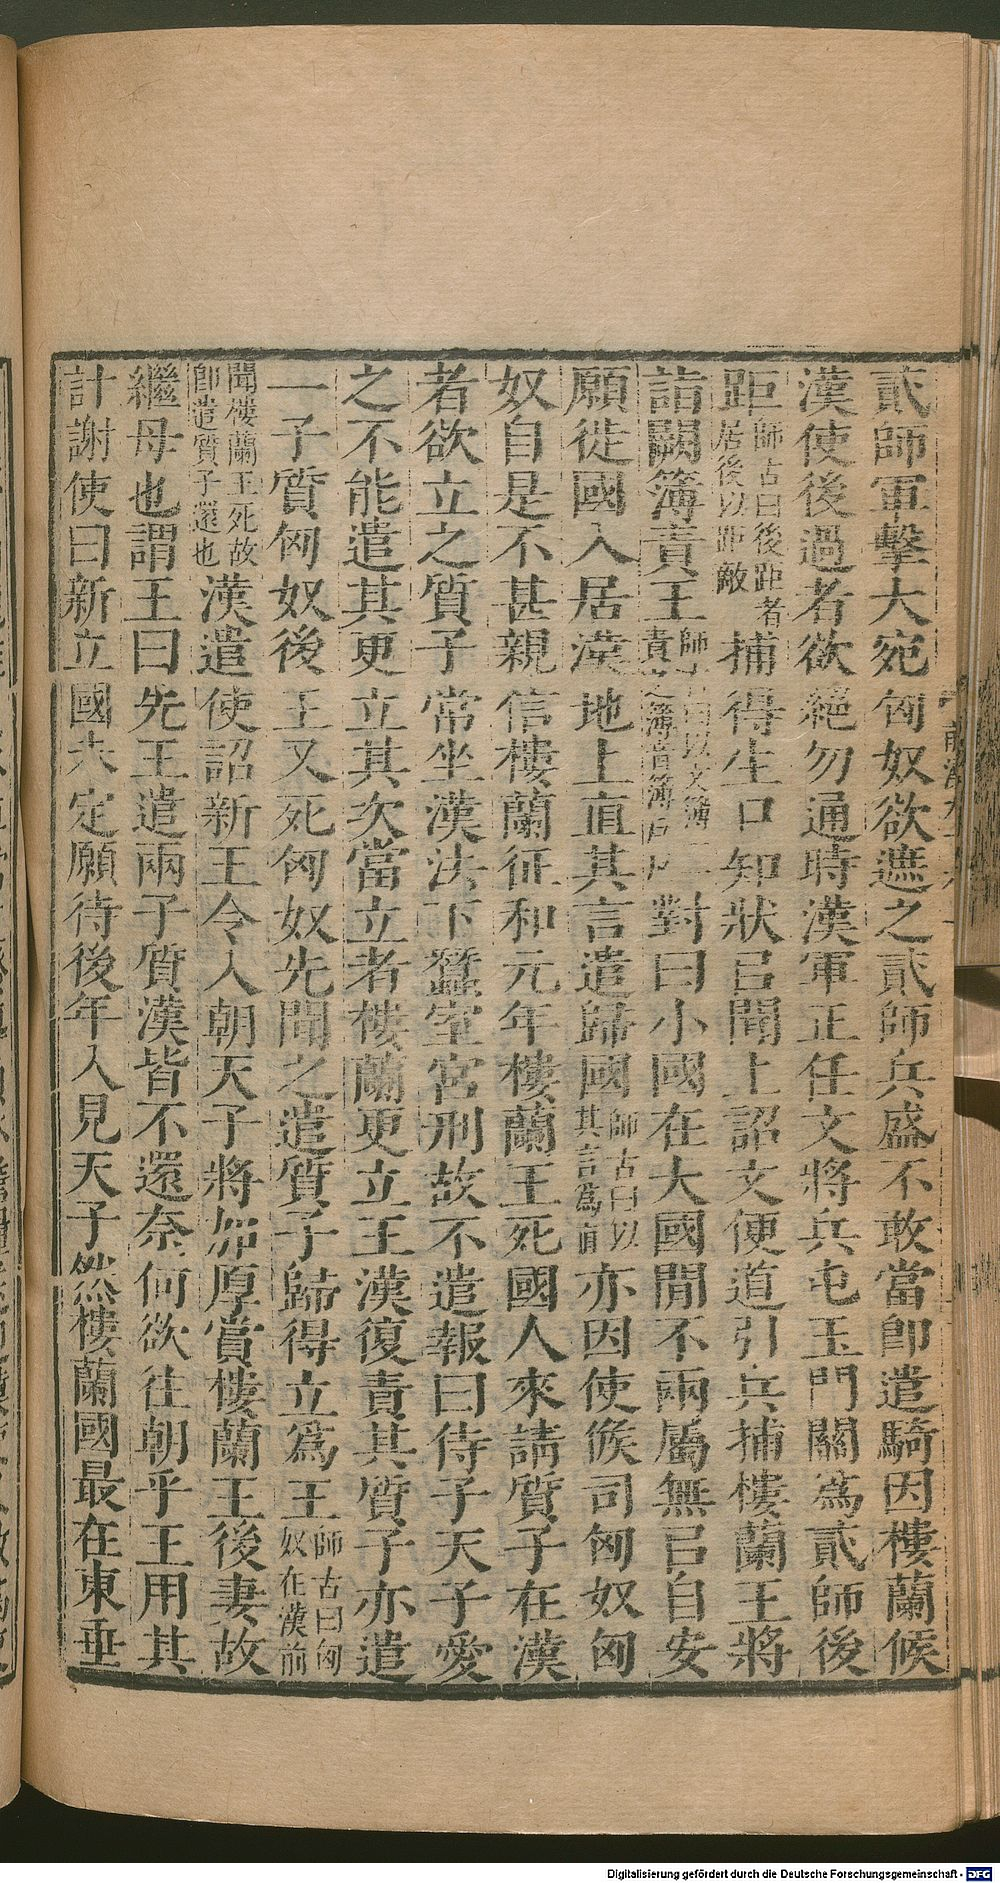 貳師軍擊大宛匈奴欲遮之貳師兵盛不敢當卽遣騎因樓蘭候
漢使後過者欲絕勿通時漢軍正任文將兵屯玉門關爲貳師後
距師古曰後距者居後以距敵捕得生口知狀㠯聞上詔文便道引兵捕樓蘭王將
詣闕簿責王師古曰以文簿一一責之簿音簿戶對曰小國在大國閒不兩屬無㠯自安
願徙國入居漢地上直其言遣歸國師古曰以其言爲直亦因使候司匈奴匈
奴自是不甚親信樓蘭征和元年樓蘭王死國人來請質子在漢
者欲立之質子常坐漢法下蠶室宮刑故不遣報曰侍子天子愛
之不能遣其更立其次當立者樓蘭更立王漢復責其質子亦遣
一子質匈奴後王又死匈奴先聞之遣質子歸得立爲王師古曰匈奴在漢前
聞樓蘭王死故卽遣質子還也漢遣使詔新王令入朝天子將加厚賞樓蘭王後妻故
繼母也謂王曰先王遣兩子質漢皆不還奈何欲往朝乎王用其
計謝使曰新立國未定願待後年入見天子然樓蘭國最在東垂
Digitalisierung gefördert durch die Deutsche Forschungsgemeinschaft - DFG